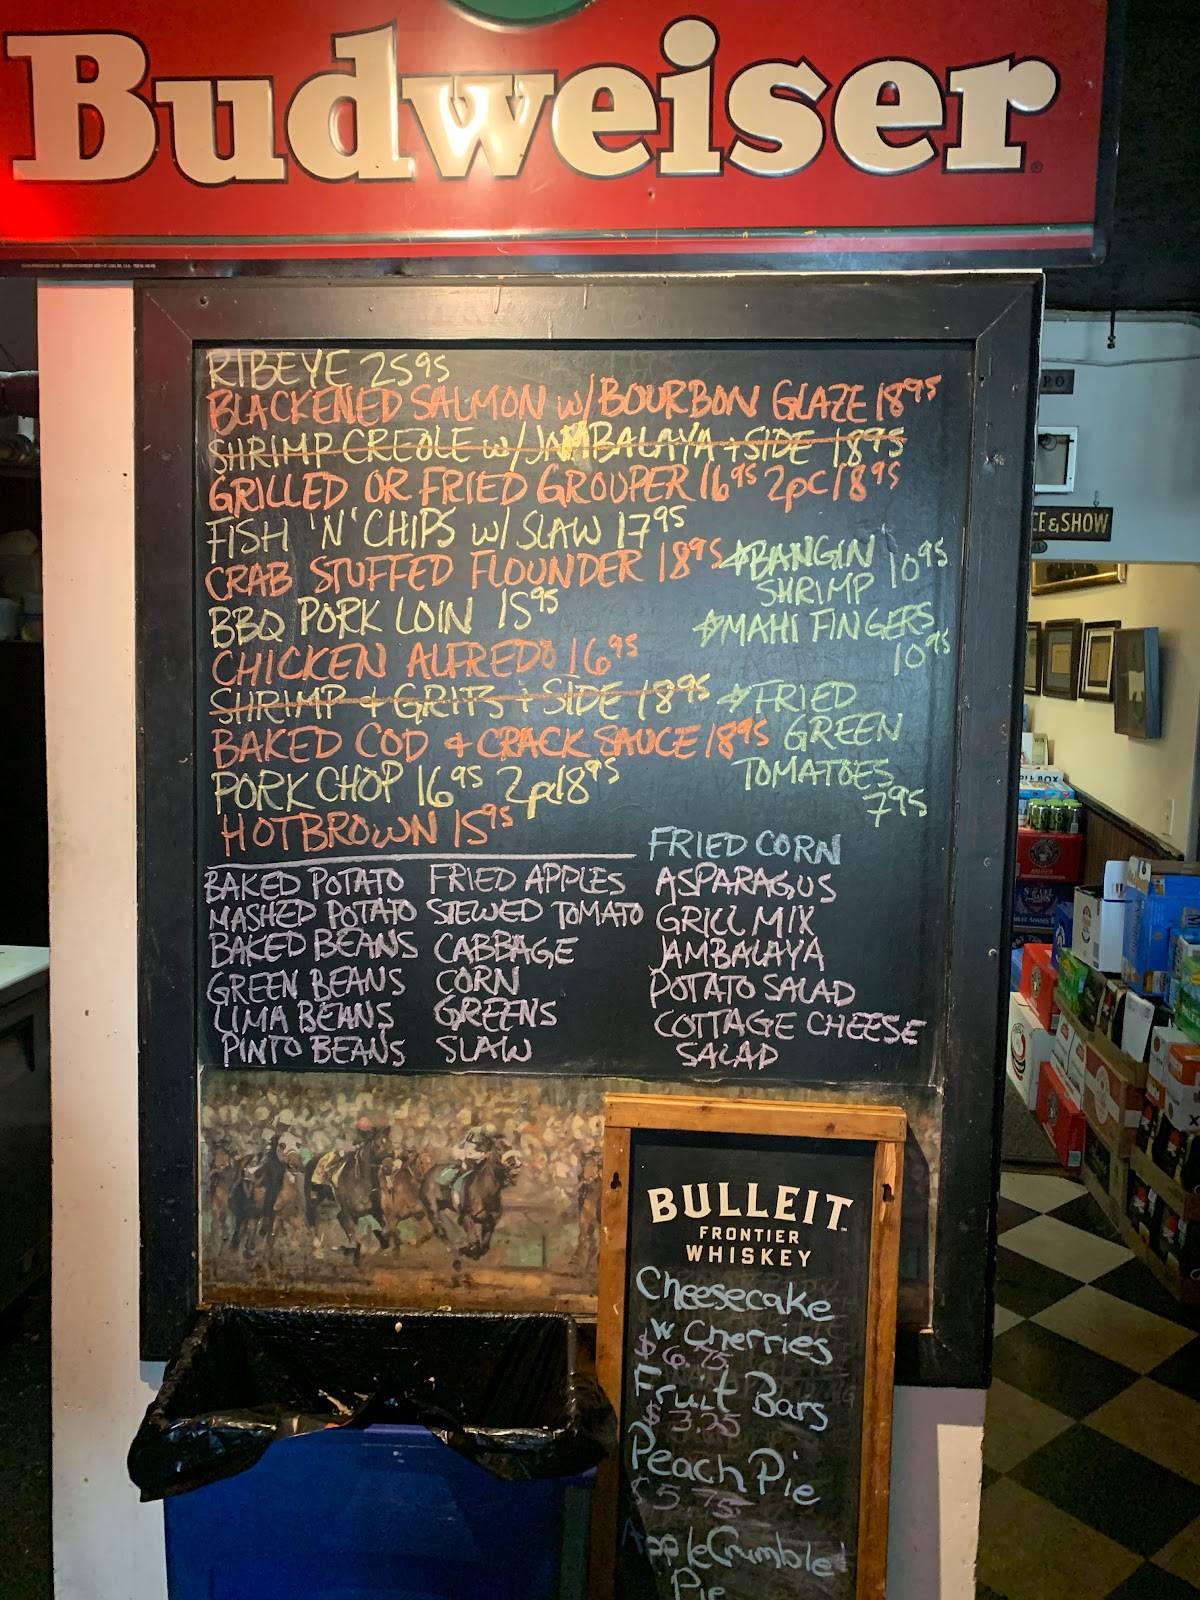 Budweiser
RIBEYE 25 95
BLACKENED SALMON w/BOURBON GLAZE 18 95
SHRIMP CREOLE w/JAMBALAYA + SIDE 18 95
GRILLED OR FRIED GROUPER 16 95 2pc 18 95
FISH 'N' CHIPS w/ SLAW 17 95
CRAB STUFFED FLOUNDER 18 95
BBQ PORK LOIN 15 95
CHICKEN ALFREDO 16 95
SHRIMP & GRITS + SIDE 18 95
BAKED COD & CRACK SAUCE 18 95
PORK CHOP 16 95 2pc 18 95
HOTBROWN 15 95
☆BANGIN
SHRIMP 10 95
☆MAHI FINGERS
10 95
☆FRIED
GREEN
TOMATOES
7 95
BAKED POTATO
MASHED POTATO
BAKED BEANS
GREEN BEANS
LIMA BEANS
PINTO BEANS
FRIED APPLES
STEWED TOMATO
CABBAGE
CORN
GREENS
SLAW
FRIED CORN
ASPARAGUS
GRILL MIX
JAMBALAYA
POTATO SALAD
COTTAGE CHEESE
SALAD
BULLEIT
FRONTIER
WHISKEY
Cheesecake
w Cherries
$6.75
Fruit Bars
$3.25
Peach Pie
$5.75
Apple Crumble
Pie
E & SHOW